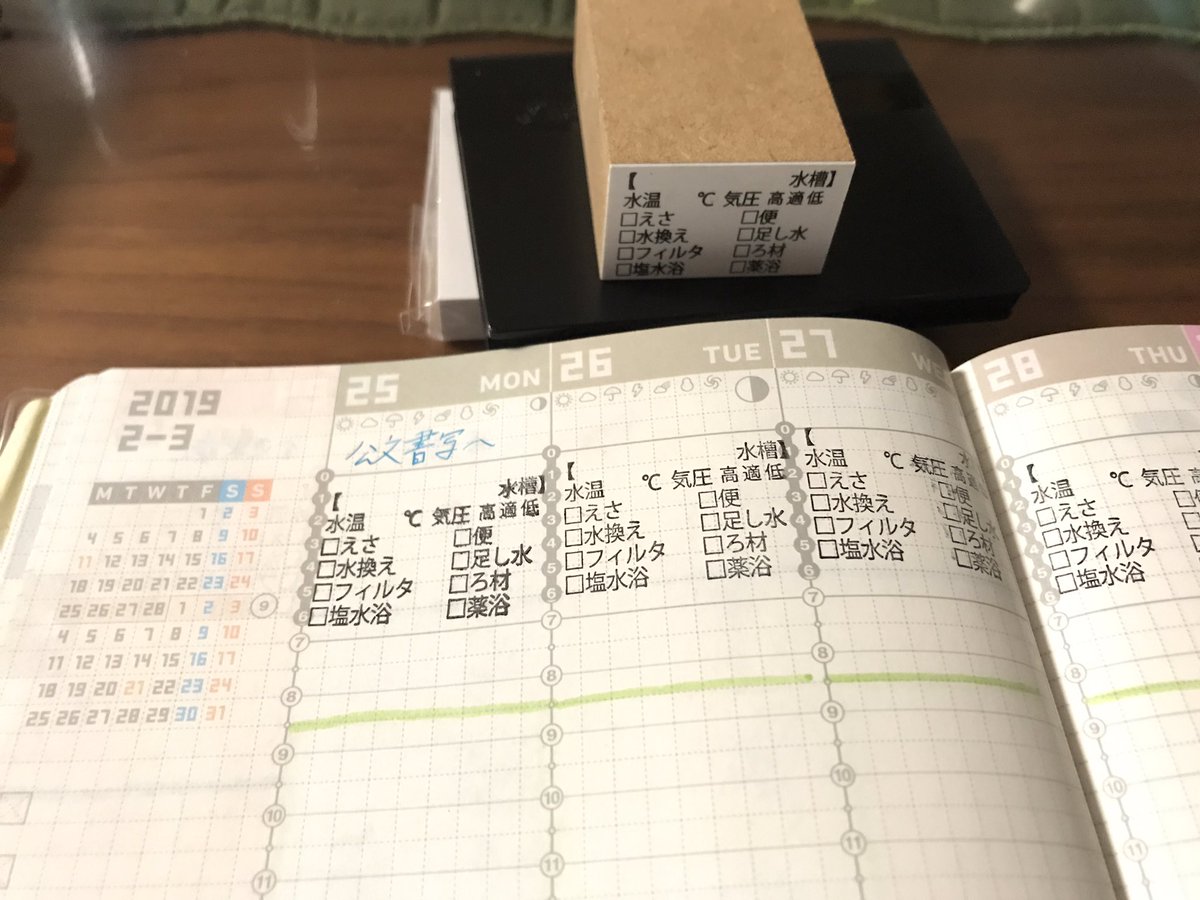 【 水槽】
水温 ℃ 気圧 高適低
□えさ □便
□水換え □足し水
□フィルタ □ろ材
□塩水浴 □薬浴
2019
2-3
M T W T F S S
1 2 3
4 5 6 7 8 9 10
11 12 13 14 15 16 17
18 19 20 21 22 23 24
25 26 27 28 1 2 3 ⑨
4 5 6 7 8 9 10
11 12 13 14 15 16 17
18 19 20 21 22 23 24
25 26 27 28 29 30 31
25 MON
公文書写へ
0
1
2
3
4
5
6
7
8
9
10
11
【 水槽】
水温 ℃ 気圧 高適低
□えさ □便
□水換え □足し水
□フィルタ □ろ材
□塩水浴 □薬浴
26 TUE
0
1
2
3
4
5
6
7
8
9
10
11
【 水槽】
水温 ℃ 気圧 高適低
□えさ □便
□水換え □足し水
□フィルタ □ろ材
□塩水浴 □薬浴
27
0
2
3
4
5
6
7
8
9
10
11
【
水温 ℃ 気圧 高適
□えさ □便
□水換え □足し水
□フィルタ □ろ材
□塩水浴 □薬浴
28 THU
0
1
2
3
4
5
6
7
8
9
10
11
【
水温 ℃
□えさ
□水換え
□フィルタ
□塩水浴